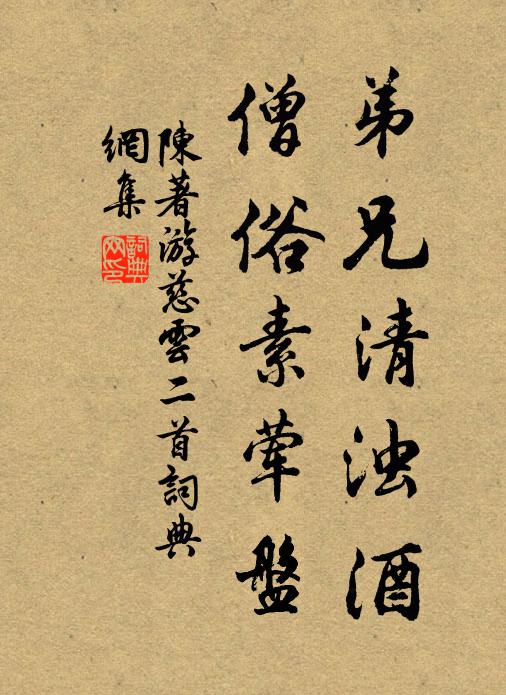 弟兄清浊酒
僧俗素荤盤
陳著游慈雲二首詞典
網集
詞典
网印